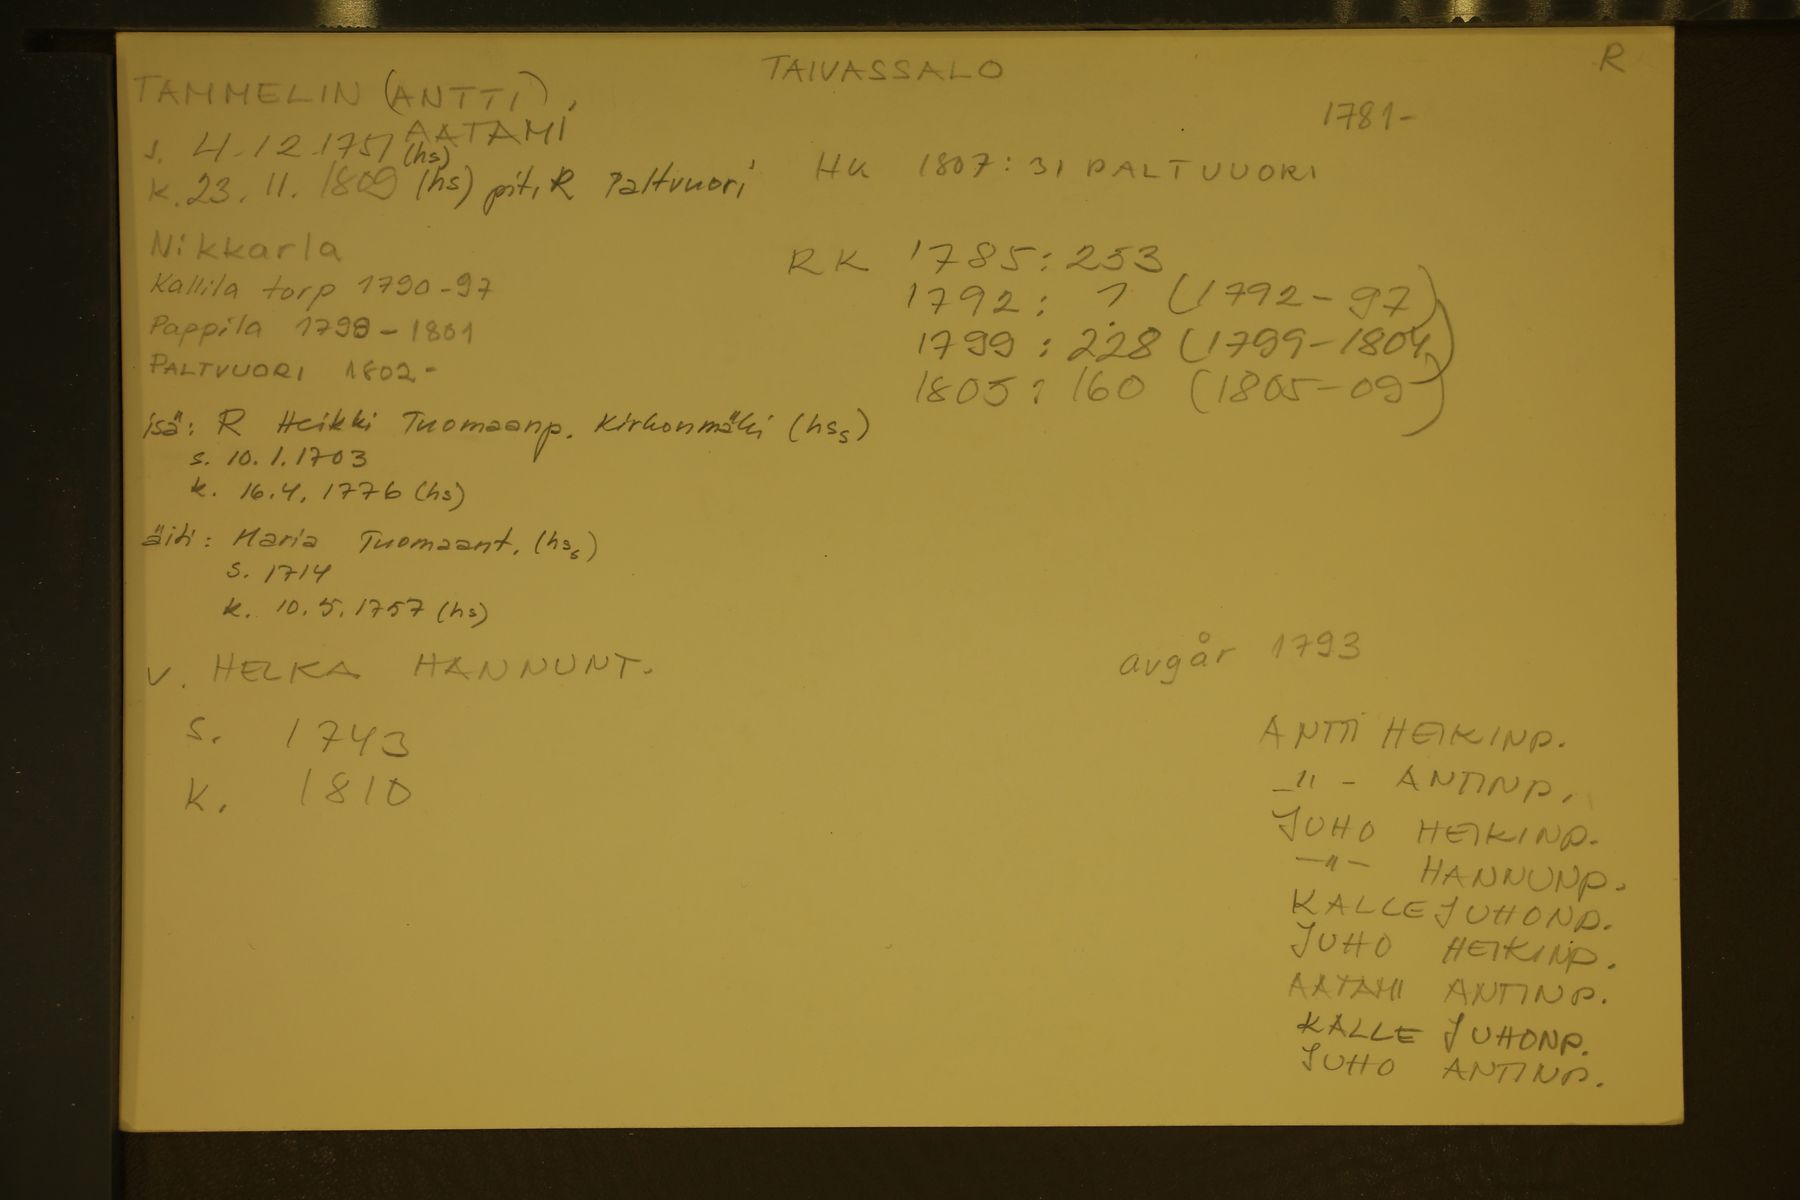 TAIVASSALO
R
TAMMELIN (ANTTI),
AATAMI
1781-
s. 4.12.1751 (hs)
k. 23.11.1809 (hs) pit. R Paltvuori
HK 1807:31 PALTVUORI
Nikkarla
Kallila torp 1790-97
Pappila 1798-1801
PALTVUORI 1802-
RK 1785:253
1792: 1 (1792-97)
1799:228 (1799-1804)
1805:160 (1805-09)
isä: R Heikki Tuomaanp. Kirkonmäki (hss)
s. 10.1.1703
k. 16.4.1776 (hs)
äiti: Maria Tuomaant. (hss)
s. 1714
k. 10.5.1757 (hs)
v. HELKA HANNUNT.
s. 1743
k. 1810
avgår 1793
ANTTI HEIKINP.
-"- ANTINP.
JUHO HEIKINP.
-"- HANNUNP.
KALLE JUHONP.
JUHO HEIKINP.
AATAMI ANTINP.
KALLE JUHONP.
JUHO ANTINP.